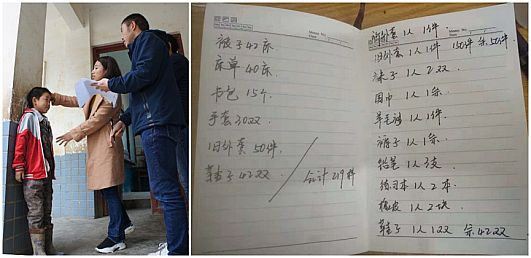 被子42床
床单40床.
卡包15个.
手套30双
旧外套50件.
鞋子42双 合计219件
外套 1人1件
旧外套 1人1件 150件 余50件
袜子 1人2双.
围巾 1人1条.
羊毛 1人1件.
裤子 1人1条.
铅笔 1人3支.
练习本 1人2本.
橡皮 1人2块.
鞋子 1人1双 余42双